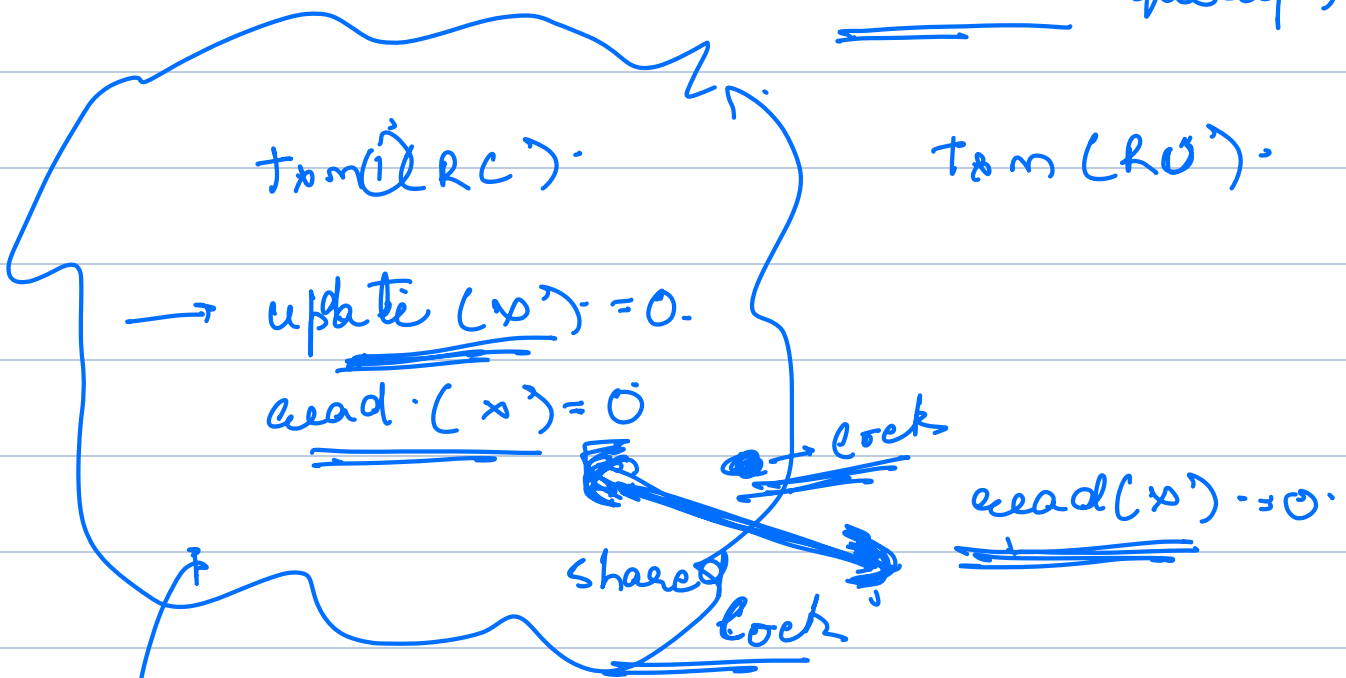 txn(1)(RC).
txn(RU).
update(x) = 0.
read.(x) = 0
lock
read(x) = 0
shared
lock